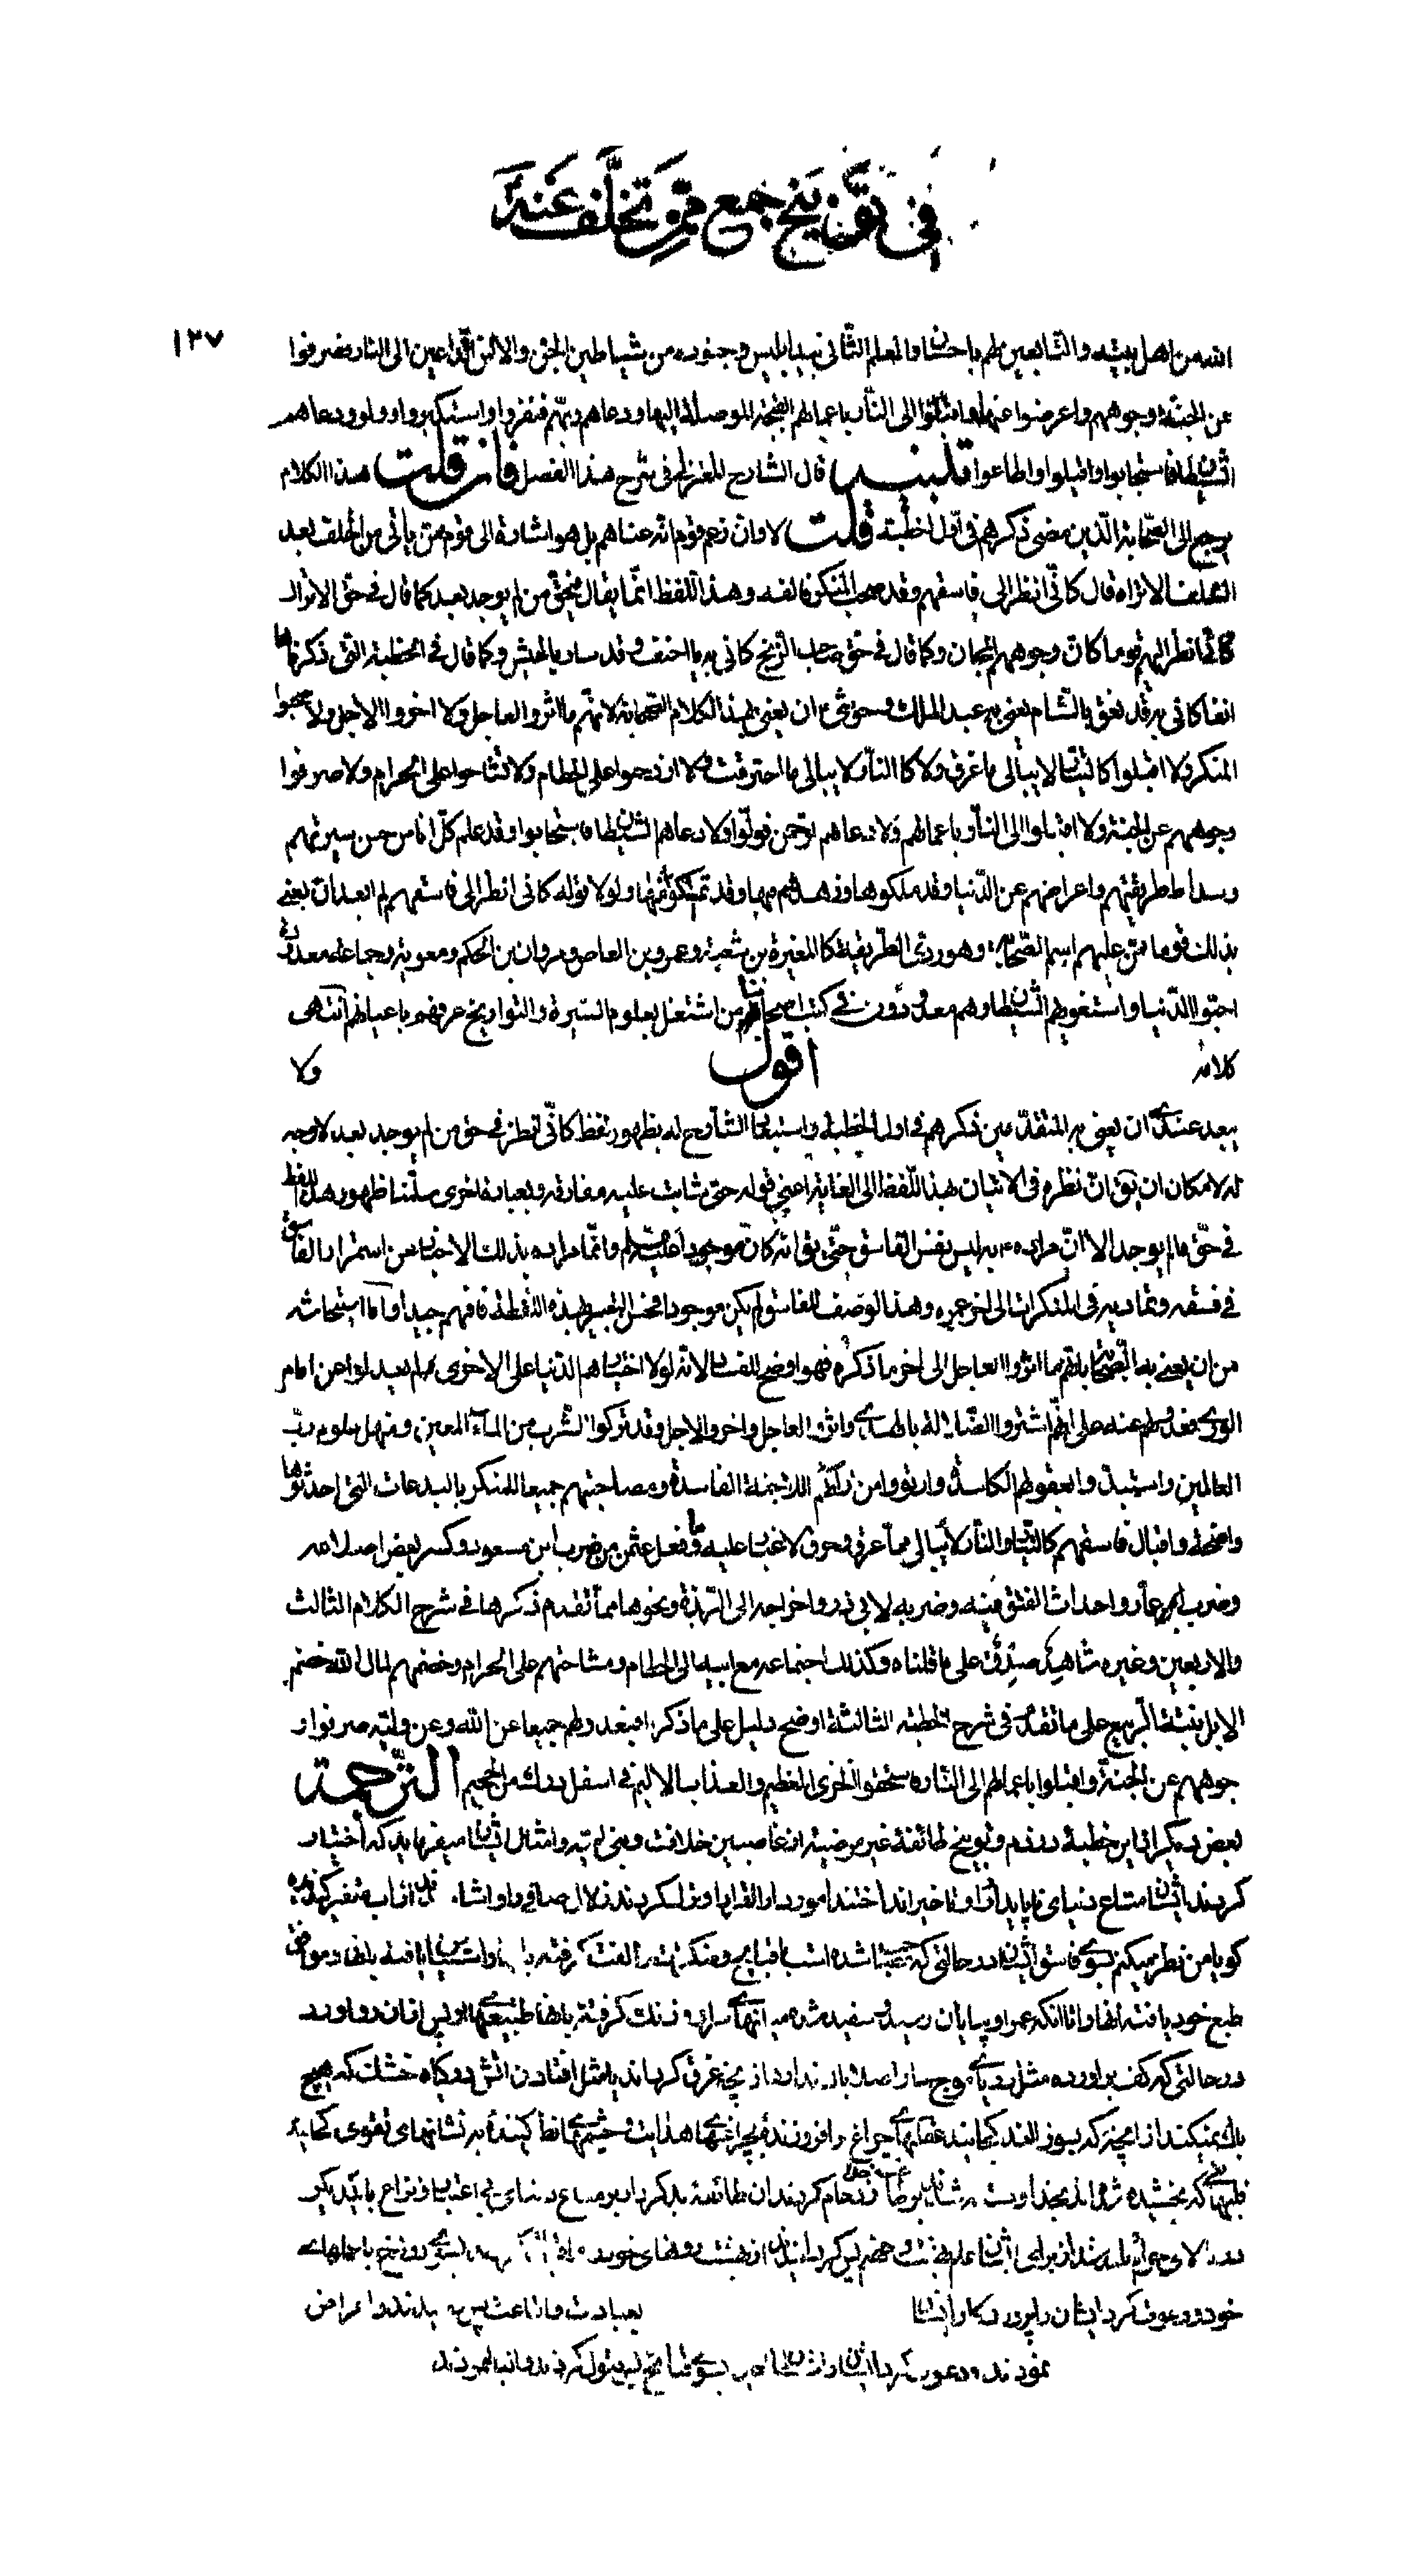 فی توبیخ جمع ممن تخلف عنه
١٣٧
الله من اهل بیته والتابعین لهم باحسان والعلم الثانی بید ابلیس وجنوده من شیاطین الجن والانس الداعین الی النار فصرفوا
عن الجنة وجوههم واعرضوا عنها واقبلوا الی النار باعمالهم القبیحة الموصلة الیها ودعاهم ربهم فنفروا واستکبروا وولوا ودعاهم
الشیطان فاستجابوا واقبلوا واطاعوا تنبیه قال الشارح المعتزلی فی شرح هذا الفصل فان قلت هذا الکلام
یرجع الی الصحابة الذین مضی ذکرهم فی اول الخطبة قلت لا وان زعم قوم انه عناهم بل هو اشارة الی قوم ممن یأتی من الخلف بعد
السلف الا تراه قال کانی انظر الی فاسقهم وقد صحب المنکر فالفه وهذا اللفظ انما یقال فی حق من لم یوجد بعد کما قال فی حق الاتراک
کانی انظر الیهم قوما کان وجوههم المجان وکما قال فی حق صاحب الزنج کانی به یا احنف وقد سار بالجیش وکما قال فی الخطبة التی ذکرناها
انفا کانی به قد نعق بالشام یعنی به عبد الملک وحوشی ان یعنی بهذا الکلام الصحابة لانهم ما اثروا العاجل ولا اخروا الاجل ولا صحبوا
المنکر ولا اقبلوا کالتیار لا یبالی ما غرق ولا کالنار لا یبالی ما احترقت ولا ازدحموا علی الحطام ولا تشاحوا علی الحرام ولا صرفوا
وجوههم عن الجنة ولا اقبلوا الی النار باعمالهم ولا دعاهم الرحمن فولوا ولا دعاهم الشیطان فاستجابوا وقد علم کل الناس حسن سیرتهم
وسداد طریقتهم واعراضهم عن الدنیا وقد ملکوها وزهدهم فیها وقد تمکنوا منها ولولا قوله کانی انظر الی فاسقهم لم ابعد ان یعنی
بذلک قوما ممن علیهم اسم الصحابة وهو ردی الطریقة کالمغیرة بن شعبة وعمرو بن العاص ومروان بن الحکم ومعویة وجماعة معدودة
احبوا الدنیا واستغویهم الشیطان وهم معدودون فی کتب اصحابنا ومن اشتغل بعلوم السیرة والتواریخ عرفهم باعیانهم انتهی
کلامه اقول ولا
یبعد عندی ان یعنی به المتقدمین ذکرهم فی اول الخطبة واستبعاد الشارح له بظهور لفظ کانی انظر فی حق من لم یوجد بعد لا وجه
له لامکان ان یق ان نظره فی الاتیان بهذا اللفظ الی الغایة اعنی قوله حتی شابت علیه مفارقه وبعبارة اخری سلمنا ظهور هذا اللفظ
فی حق من لم یوجد الا ان مراده ع به لیس نفس الفاسق حتی یق انه کان موجودا وانما مراده بذلک الاخبار عن استمرار الفاسق
فی فسقه وتمادیه فی المنکرات الی اخر عمره وهذا الوصف للفاسق لم یکن موجودا فحسن التعبیر بهذه اللفظة فافهم جیدا واما استیحاشه
من ان یعنی به الصحابة بانهم ما اثروا العاجل الی اخر ما ذکره فهو اوضح الفساد لانه لولا اختیارهم الدنیا علی الاخری لم یعدلوا عن امام
الوری فعدولهم عنه علی انهم اشتروا الضلالة بالهدی واثروا العاجل واخروا الاجل وقد ترکوا الشرب من الماء المعین ومنهل علوم رب
العالمین واستبدوا بعقولهم الکاسدة وارتووا من ارائهم الاجنة الفاسدة ومصاحبتهم جمیعا للمنکر بالبدعات التی احدثوها
واضحة واقبال فاسقهم کالتیار والنار لا یبالی مما غرق وحرق لا غبار علیه وما فعل عثمن من ضرب ابن مسعود وکسر بعض اضلاعه
وضرب عمار واحداث الفتق فیه وضربه لابی ذر واخراجه الی الربذة ونحوها مما تقدم ذکرها فی شرح الکلام الثالث
والاربعین وغیره شاهد صدق علی ما قلناه وکذلک اجتماعه مع ابیه الی الحطام ومشاحتهم علی الحرام وخضمهم لمال الله خضم
الابل نبتة الربیع علی ما تقدم فی شرح الخطبة الثالثة اوضح دلیل علی ما ذکر فبعدولهم جمیعا عن الله وعن ولیه صرفوا و
جوههم عن الجنة واقبلوا باعمالهم الی النار واستحقوا الخزی العظیم والعذاب الالیم فی اسفل درک من الجحیم الترجمة
بعض دیگر از این خطبه در ذم وتوبیخ طائفه غیر مرضیه از غاصبین خلافت وبنی امیه وامثال ایشان میفرماید که اختیار
کردند ایشان متاع دنیای ناپایدار را وتاخیر انداختند امور دار القرار را وترک کردند زلال صافی را واشامیدند از اب متغیر گندیده
گویا من نظر میکنم بسوی فاسق ایشان در حالتی که مصاحب شده است با قبایح ومنکرات والفت گرفته با آنها وانس یافته بانها وموافق
طبع خود یافته انها را تا انکه عمر او بپایان رسیده وسفید شده موی سر او ورنگ گرفته بانها طبیعتهای او پس ازان رو اورد
در حالتی که کف براورده مثل دریای موج دار اصلا باک ندارد از چیزی غرق کرداند یا مثل افتادن اتش در گیاه خشک که هیچ
باک نمیکند از انچه که بسوزاند کجایند عقلهای چراغ افروزنده بچراغهای هدایت وچشمهای نظر کننده به نشانهای تقوی کجایند
قلبهائی که بخشیده شده اند بخدا وبسته شده اند بر طاعت خدا ازدحام کردند ان طائفه بدکردار بر متاع دنیای بی اعتبار ونزاع با یکدیگر
خود ودعوت کرد ایشان را پروردگار ایشان بعبادت واطاعت پس رمیدند واعراض
نمودند ودعوت کرد ایشان را شیطان بسوی قبایح پس قبول کردند واقبال نمودند